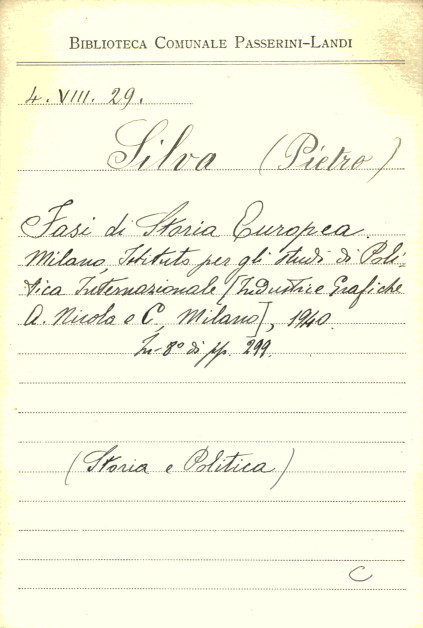 BIBLIOTECA COMUNALE PASSERINI-LANDI
4. VIII. 29.
Silva (Pietro)
Fasi di Storia Europea.
Milano, Istituto per gli studi di Poli-
tica Internazionale [Industrie Grafiche
A. Nicola e C. Milano], 1940.
In-8° di pp. 299.
(Storia e Politica)
C